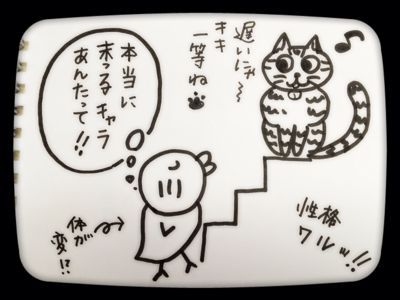 遅いにゃ〜
キキ
一等ね
本当に
末っるキャラ
あんたって!!
体が
変!?
性格
ワルッ!!